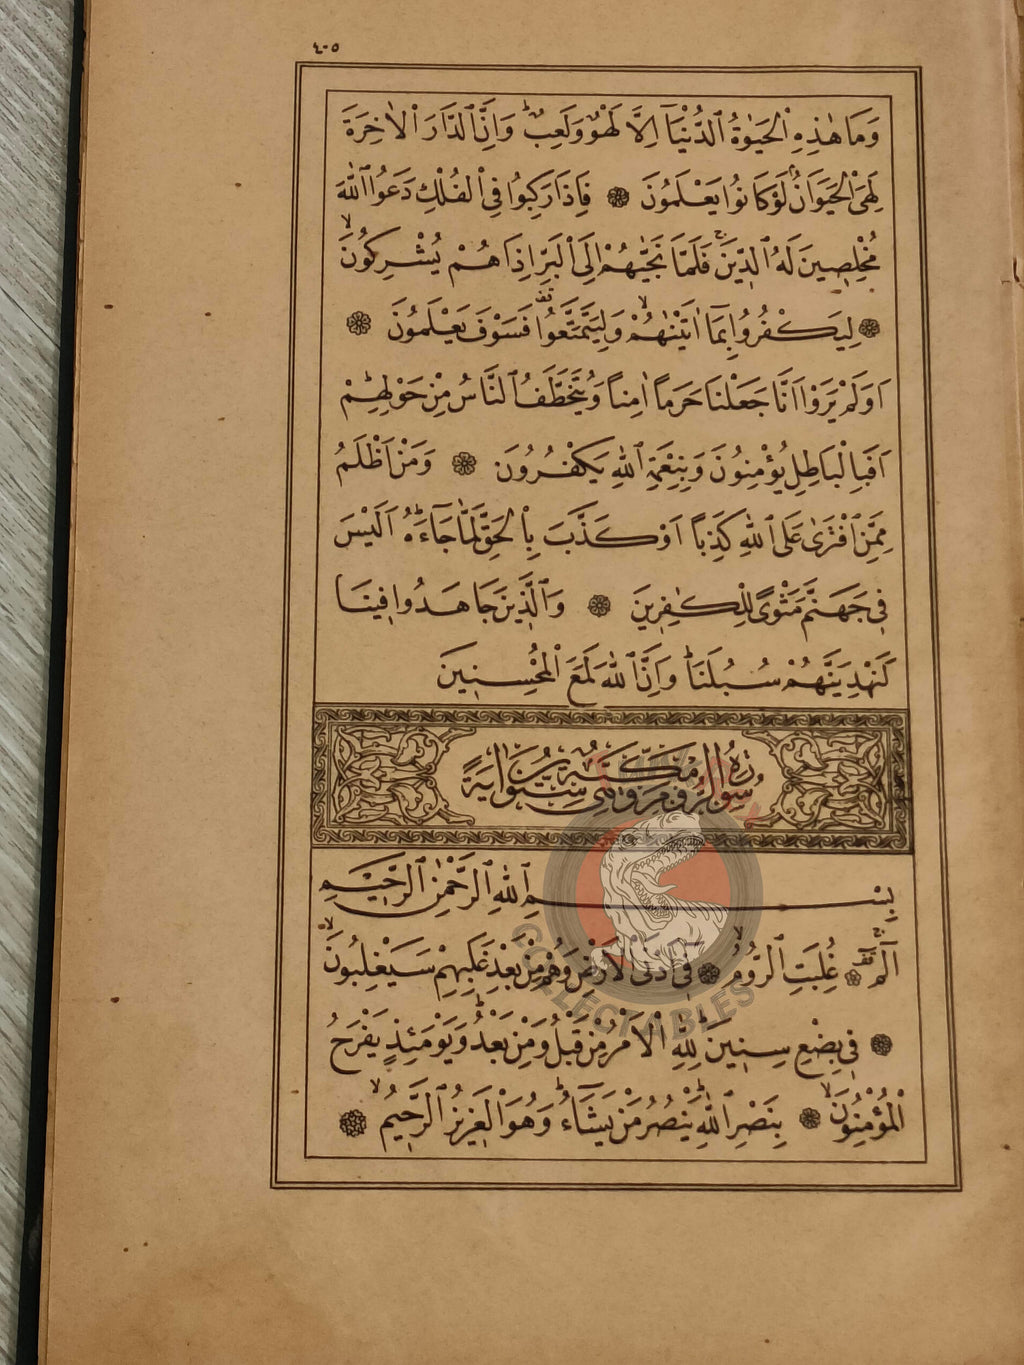 ٤٠٥
وَمَا هٰذِهِ الْحَيٰوةُ الدُّنْيَٓا اِلَّا لَهْوٌ وَلَعِبٌۜ وَاِنَّ الدَّارَ الْاٰخِرَةَ
لَهِيَ الْحَيَوَانُۢ لَوْ كَانُوا يَعْلَمُونَ ۞ فَاِذَا رَكِبُوا فِي الْفُلْكِ دَعَوُا اللّٰهَ
مُخْلِصِينَ لَهُ الدِّينَۚ فَلَمَّا نَجّٰيهُمْ اِلَى الْبَرِّ اِذَا هُمْ يُشْرِكُونَۙ
۞ لِيَكْفُرُوا بِمَٓا اٰتَيْنٰهُمْۙ وَلِيَتَمَتَّعُوا۠ فَسَوْفَ يَعْلَمُونَ ۞
اَوَلَمْ يَرَوْا اَنَّا جَعَلْنَا حَرَمًا اٰمِنًا وَيُتَخَطَّفُ النَّاسُ مِنْ حَوْلِهِمْۜ
اَفَبِالْبَاطِلِ يُؤْمِنُونَ وَبِنِعْمَةِ اللّٰهِ يَكْفُرُونَ ۞ وَمَنْ اَظْلَمُ
مِمَّنِ افْتَرٰى عَلَى اللّٰهِ كَذِبًا اَوْ كَذَّبَ بِالْحَقِّ لَمَّا جَٓاءَهُۜ اَلَيْسَ
فِي جَهَنَّمَ مَثْوًى لِلْكٰفِرِينَ ۞ وَالَّذِينَ جَاهَدُوا فِينَا
لَنَهْدِيَنَّهُمْ سُبُلَنَاۜ وَاِنَّ اللّٰهَ لَمَعَ الْمُحْسِنِينَ
سُورَةُ الرُّومِ مَكِّيَّةٌ وَهِيَ سِتُّونَ اٰيَةً
بِسْمِ اللّٰهِ الرَّحْمٰنِ الرَّحِيمِ
الٓمٓ ۞ غُلِبَتِ الرُّومُۙ ۞ فِٓي اَدْنَى الْاَرْضِ وَهُمْ مِنْ بَعْدِ غَلَبِهِمْ سَيَغْلِبُونَۙ
۞ فِي بِضْعِ سِنِينَۜ لِلّٰهِ الْاَمْرُ مِنْ قَبْلُ وَمِنْ بَعْدُۜ وَيَوْمَئِذٍ يَفْرَحُ
الْمُؤْمِنُونَۙ ۞ بِنَصْرِ اللّٰهِۜ يَنْصُرُ مَنْ يَشَٓاءُۜ وَهُوَ الْعَزِيزُ الرَّحِيمُۙ ۞
COLLECTABLES